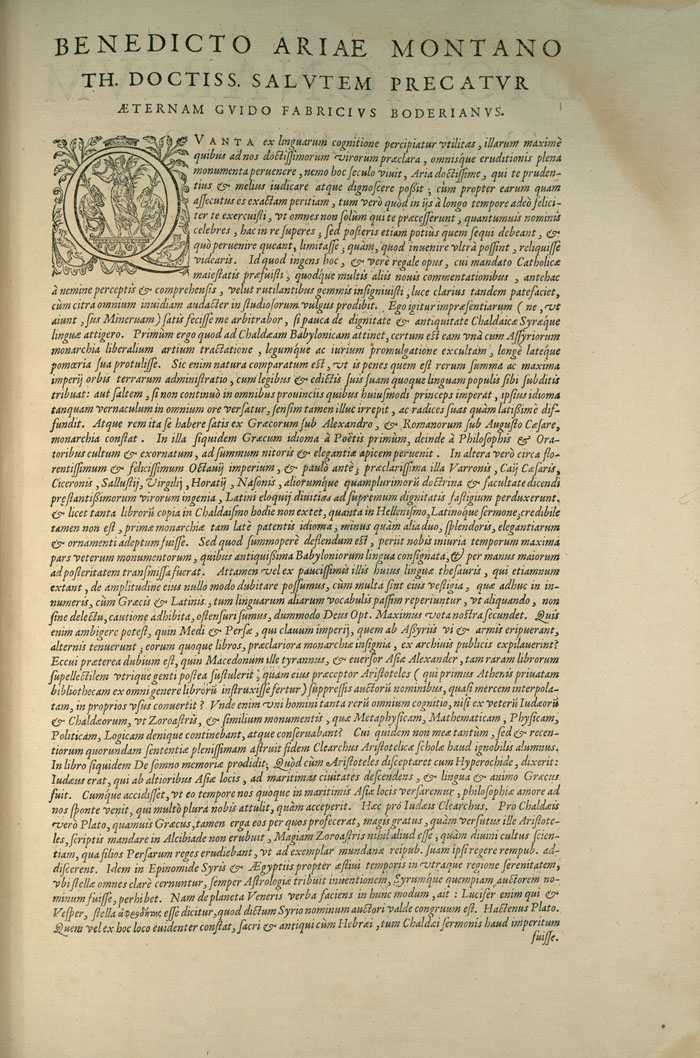 BENEDICTO ARIAE MONTANO
TH. DOCTISS. SALVTEM PRECATVR
ÆTERNAM GVIDO FABRICIVS BODERIANVS.
QVANTA ex linguarum cognitione percipiatur vtilitas, illarum maximè
quibus ad nos doctissimorum virorum præclara, omnisque eruditionis plena
monumenta peruenere, nemo hoc seculo viuit, Aria doctissime, qui te pruden-
tius & melius iudicare atque dignoscere possit; cùm propter earum quam
assecutus es exactam peritiam, tum verò quòd in ijs à longo tempore adeò felici-
ter te exercuisti, vt omnes non solùm qui te præcesserunt, quantumuis nominis
celebres, hac in re superes; sed posteris etiam potiùs quem sequi debeant, &
quò peruenire queant, limitasse; quàm, quod inuenire vltrà possint, reliquisse
videaris. Id quod ingens hoc, & verè regale opus, cui mandato Catholicæ
maiestatis præfuisti, quodque multis aliis nouis commentationibus, antehac
à nemine perceptis & comprehensis, velut rutilantibus gemmis insigniuisti, luce clarius tandem patefaciet,
cùm citra omnium inuidiam audacter in studiosorum vulgus prodibit. Ego igitur impræsentiarum (ne, vt
aiunt, sus Mineruam) satis fecisse me arbitrabor, si pauca de dignitate & antiquitate Chaldaicæ Syræque
linguæ attigero. Primùm ergo quod ad Chaldæam Babylonicam attinet, certum est eam vnà cum Assyriorum
monarchia liberalium artium tractatione, legumque ac iurium promulgatione excultam, longè latéque
pomœria sua protulisse. Sic enim natura comparatum est, vt is penes quem est rerum summa ac maxima
imperij orbis terrarum administratio, cum legibus & edictis suis suam quoque linguam populis sibi subditis
tribuat: aut saltem, si non continuò in omnibus prouinciis quibus huiusmodi princeps imperat, ipsius idioma
tanquam vernaculum in omnium ore versatur, sensim tamen illuc irrepit, ac radices suas quàm latissimè dif-
fundit. Atque rem ita se habere satis ex Græcorum sub Alexandro, & Romanorum sub Augusto Cæsare,
monarchia constat. In illa siquidem Græcum idioma à Poëtis primùm, deinde à Philosophis & Ora-
toribus cultum & exornatum, ad summum nitoris & elegantiæ apicem peruenit. In altera verò circa flo-
rentissimum & felicissimum Octauij imperium, & paulò antè; præclarissima illa Varronis, Caij Cæsaris,
Ciceronis, Sallustij, Virgilij, Horatij, Nasonis, aliorumque quamplurimorũ doctrina & facultate dicendi
prestantissimorum virorum ingenia, Latini eloquij diuitias ad supremum dignitatis fastigium perduxerunt.
& licet tanta librorũ copia in Chaldaismo hodie non extet, quanta in Hellenismo, Latinoque sermone; credibile
tamen non est, primæ monarchiæ tam latè patentis idioma, minus quàm alia duo, splendoris, elegantiarum
& ornamenti adeptum fuisse. Sed quod summoperè deflendum est, periit nobis iniuria temporum maxima
pars veterum monumentorum, quibus antiquissima Babyloniorum lingua consignata, & per manus maiorum
ad posteritatem transmissa fuerat. Attamen vel ex paucissimis illis huius linguæ thesauris, qui etiamnum
extant, de amplitudine eius nullo modo dubitare possumus, cùm multa sint eius vestigia, quæ adhuc in in-
numeris, cùm Græcis & Latinis, tum linguarum aliarum vocabulis passim reperiuntur, vt aliquando, non
sine delectu, cautione adhibita, ostensuri sumus, dummodo Deus Opt. Maximus vota nostra secundet. Quis
enim ambigere potest, quin Medi & Persæ, qui clauum imperij, quem ab Assyriis vi & armis eripuerant,
alternis tenuerunt; eorum quoque libros, præclariora monarchiæ insignia, ex archiuis publicis expilauerint?
Eccui præterea dubium est, quin Macedonum ille tyrannus, & euersor Asiæ Alexander, tam raram librorum
supellectilem vtrique genti postea sustulerit; quam eius præceptor Aristoteles (qui primus Athenis priuatam
bibliothecam ex omni genere librorũ instruxisse fertur) suppressis auctorũ nominibus, quasi mercem interpola-
tam, in proprios vsus conuertit? Vnde enim vni homini tanta rerũ omnium cognitio, nisi ex veterũ Iudæorũ
& Chaldæorum, vt Zoroastris, & similium monumentis, quæ Metaphysicam, Mathematicam, Physicam,
Politicam, Logicam denique continebant, atque conseruabant? Cui quidem non mea tantùm, sed & recen-
tiorum quorundam sententiæ plenissimam astruit fidem Clearchus Aristotelicæ scholæ haud ignobilis alumnus.
In libro siquidem De somno memoriæ prodidit; Quòd cùm Aristoteles disceptaret cum Hyperochide, dixerit:
Iudæus erat, qui ab altioribus Asiæ locis, ad maritimas ciuitates descendens, & lingua & animo Græcus
fuit. Cumque accidisset, vt eo tempore nos quoque in maritimis Asiæ locis versaremur, philosophiæ amore ad
nos sponte venit, qui multò plura nobis attulit, quàm acceperit. Hæc prò Iudæis Clearchus. Pro Chaldæis
verò Plato, quamuis Græcus, tamen erga eos per quos profecerat, magis gratus, quàm versutus ille Aristote-
les, scriptis mandare in Alcibiade non erubuit, Magiam Zoroastris nihil aliud esse, quàm diuini cultus scien-
tiam, qua filios Persarum reges erudiebant, vt ad exemplar mundanæ reipub. suam ipsi regere rempub. ad-
discerent. Idem in Epinomide Syris & Ægyptiis propter æstiui temporis in vtraque regione serenitatem,
vbi stellæ omnes clarè cernuntur, semper Astrologiæ tribuit inuentionem, Syrumque quempiam auctorem no-
minum fuisse, perhibet. Nam de planeta Veneris verba faciens in hunc modum, ait: Lucifer enim qui &
Vesper, stella ἀφροδίτης esse dicitur, quod dictum Syrio nominum auctori valde congruum est. Hactenus Plato.
Quem vel ex hoc loco euidenter constat, sacri & antiqui cùm Hebræi, tum Chaldæi sermonis haud imperitum
fuisse.